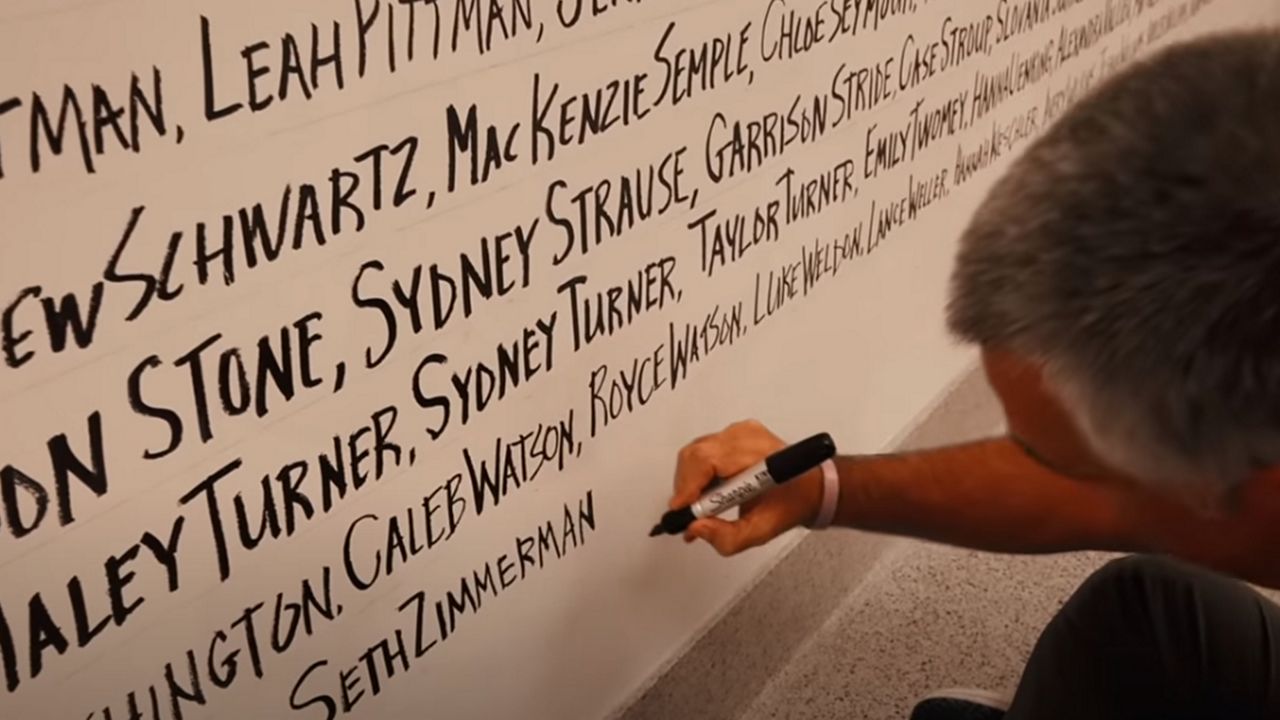 TMAN, LEAH PITTMAN,
EW SCHWARTZ, MACKENZIE SEMPLE, CHLOE SEYMOUR,
ON STONE, SYDNEY STRAUSE, GARRISON STRIDE, CASE STROUP, SLOVANIA
HALEY TURNER, SYDNEY TURNER, TAYLOR TURNER, EMILY TWOMEY, HANNA UENKING,
HINGTON, CALEB WATSON, ROYCE WATSON, LUKE WELDON, LANCE WELLER, HANNAH
SETH ZIMMERMAN
Sharpie